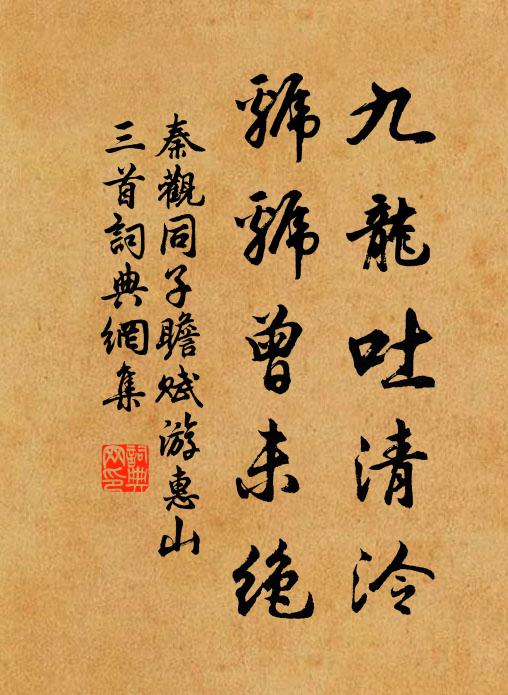 九龍吐清泠
虢虢曾未絶
秦觀同子瞻賦游惠山
三首詞典網集
詞典
网印